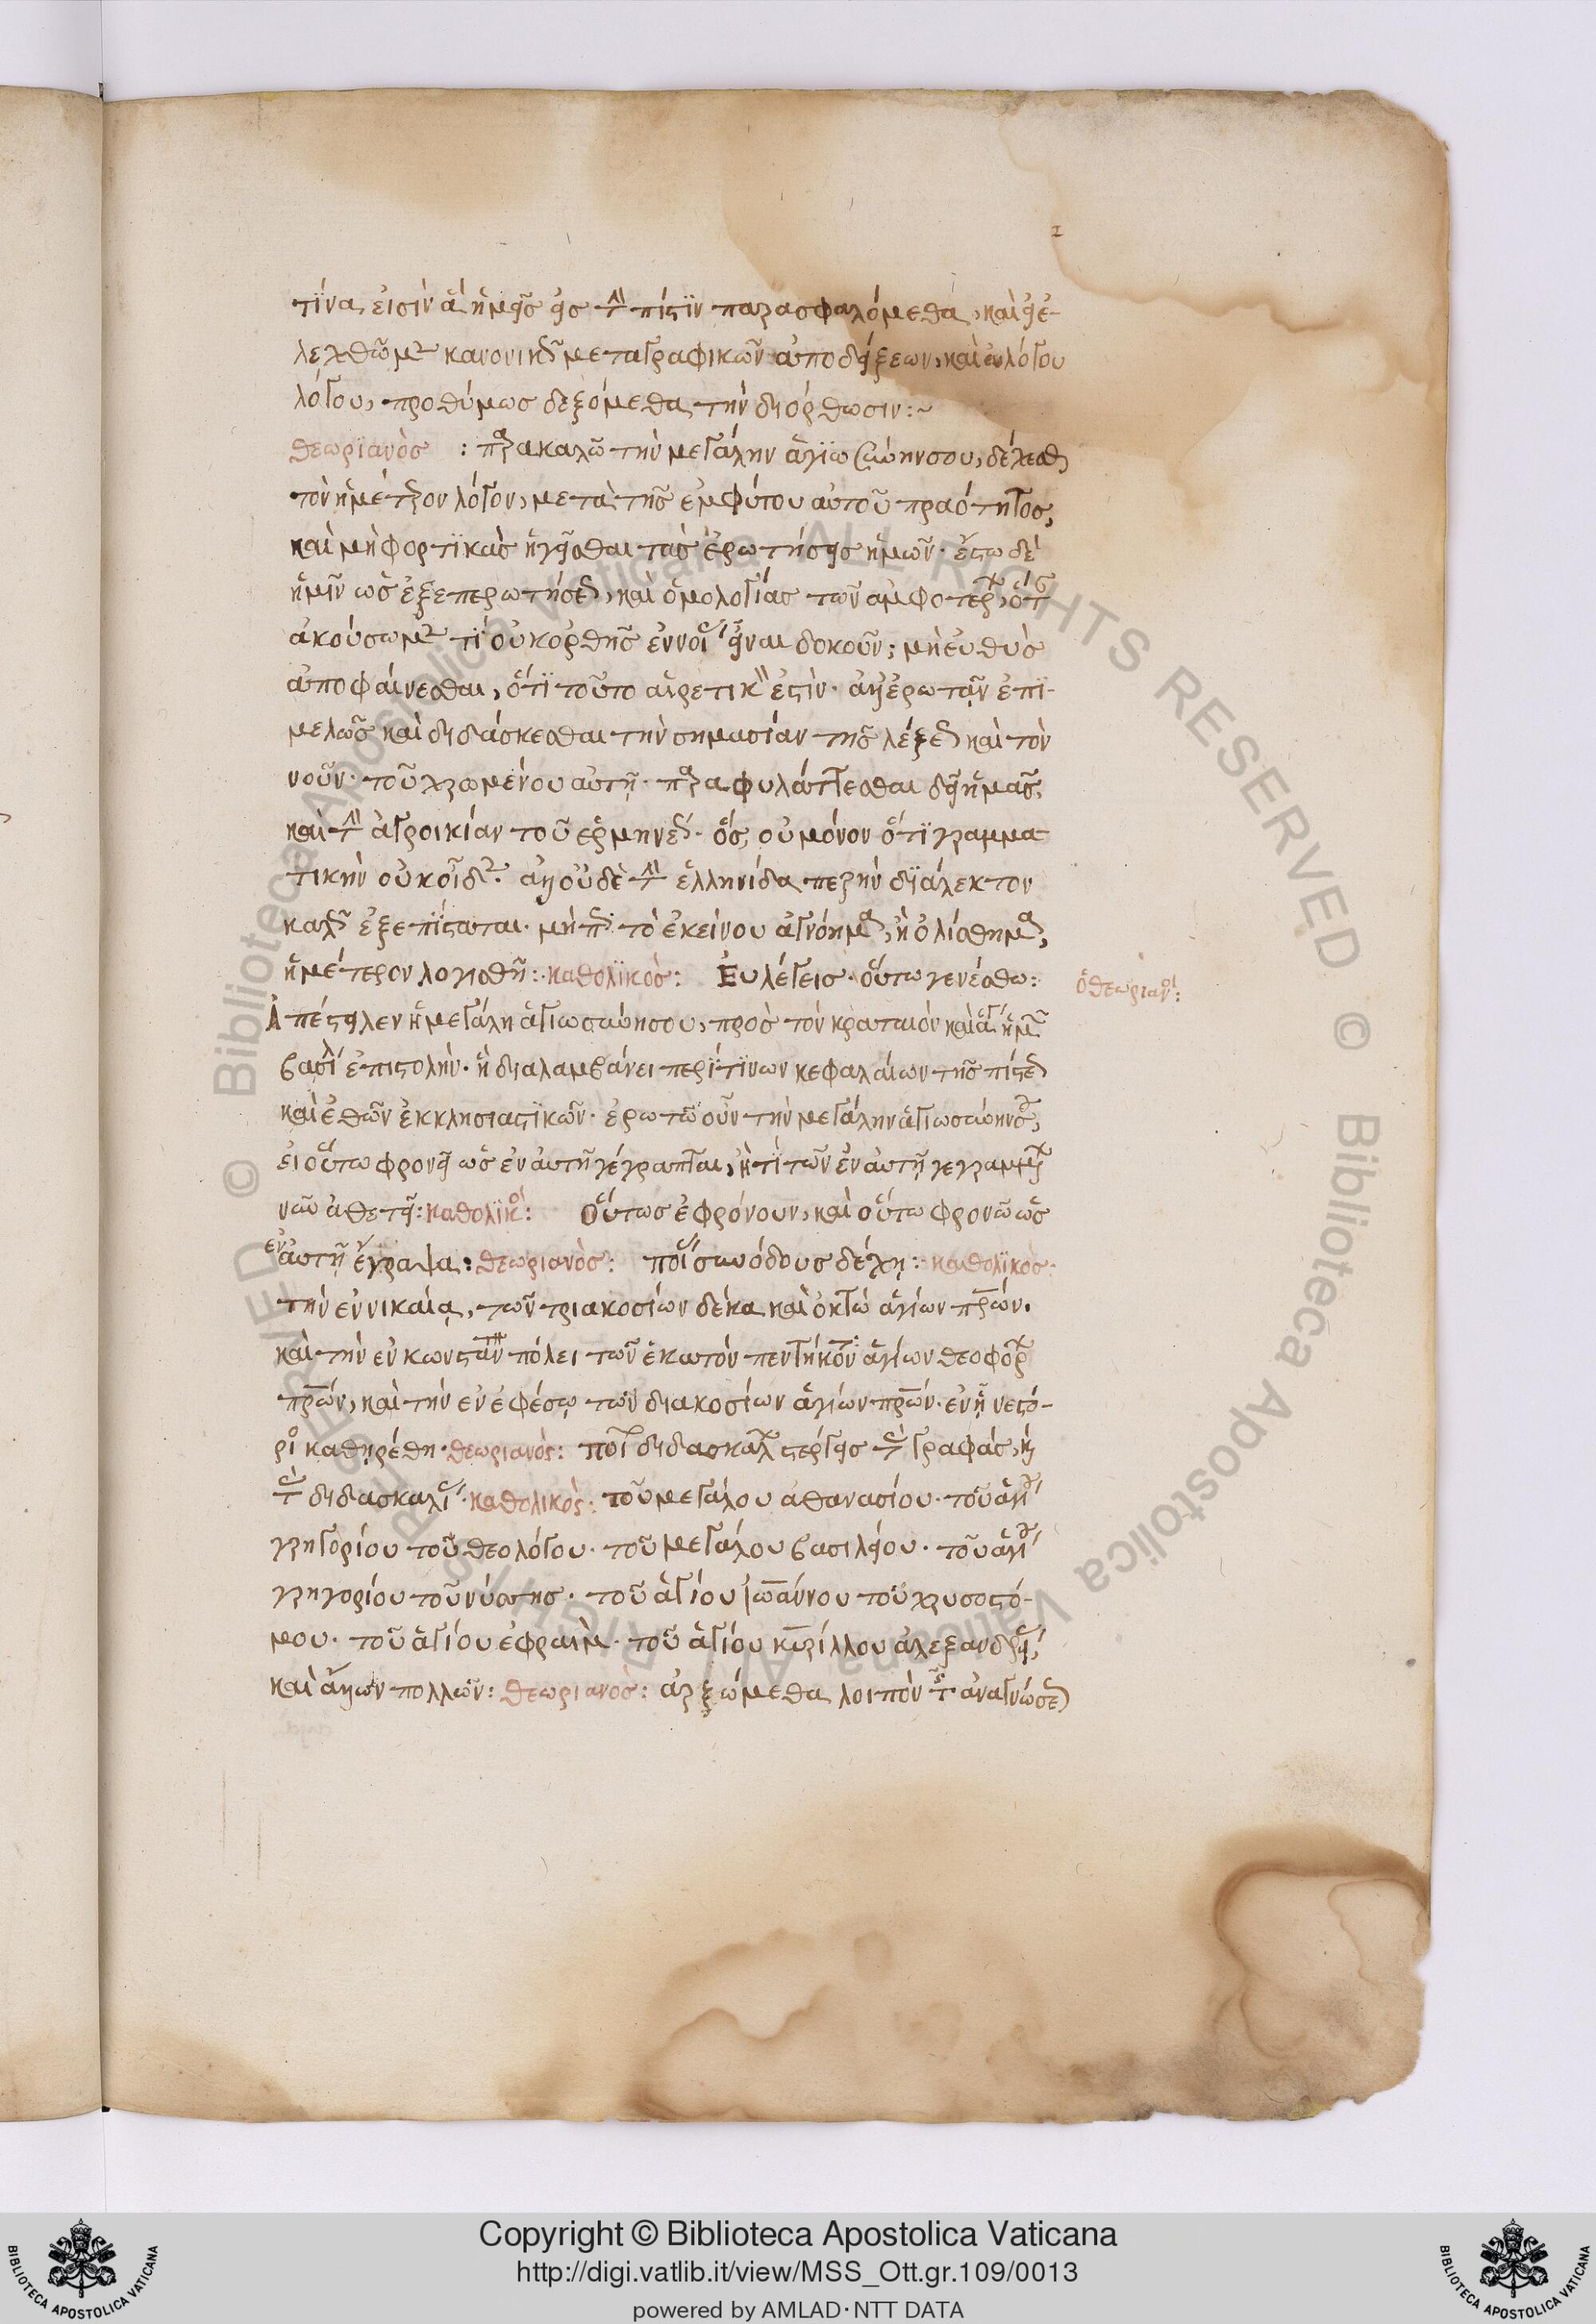 τίνα εἰσὶν ἃ ἡμεῖς εἰς τὴν πίστιν παρασφαλόμεθα, καὶ εἰ ἐ-
λεχθῶμεν κανονικῶς μετὰ γραφικῶν ἀποδείξεων, καὶ εὐλόγου
λόγου, προθύμως δεξόμεθα τὴν διόρθωσιν:~
θεωριανὸς : παρακαλῶ τὴν μεγάλην ἁγιωσύνην σου, δέχεσθαι
τὸν ἡμέτερον λόγον, μετὰ τῆς ἐμφύτου αὐτοῦ πραότητος,
καὶ μὴ φορτικὰς ἡγεῖσθαι τὰς ἐρωτήσεις ἡμῶν· ἔστω δὲ
ἡμῖν ὡς ἐξ ἐπερωτήσεως, καὶ ὁμολογίας τῶν ἀμφοτέρων, ὅταν
ἀκούσωμεν τί οὐκ ὀρθῆς ἐννοίας εἶναι δοκοῦν; μὴ εὐθὺς
ἀποφαίνεσθαι, ὅτι τοῦτο αἱρετικόν ἐστιν· ἀλλ' ἐρωτᾶν ἐπι-
μελῶς καὶ διδάσκεσθαι τὴν σημασίαν τῆς λέξεως καὶ τὸν
νοῦν· τοῦ χρωμένου αὐτῇ· παραφυλάττεσθαι δεῖ ἡμᾶς,
καὶ τὴν ἀγροικίαν τοῦ ἑρμηνέως· ὅς, οὐ μόνον ὅτι γραμμα
τικὴν οὐκ οἶδεν· ἀλλ' οὐδὲ τὴν ἑλληνίδα πεζὴν διάλεκτον
καλῶς ἐξεπίσταται· μήπως τὸ ἐκείνου ἀγνόημα, ἢ ὀλίσθημα,
ἡμέτερον λογισθῇ: καθολικὸς: Εὖ λέγεις· οὕτω γενέσθω:
ὁ θεωριανός:
Ἀπέστειλεν ἡ μεγάλη ἁγιωσύνη σου, πρὸς τὸν κραταιὸν καὶ ἅγιον ἡμῶν
βασιλέα ἐπιστολήν· ἣ διαλαμβάνει περί τινων κεφαλαίων τῆς πίστεως
καὶ ἐθῶν ἐκκλησιαστικῶν· ἐρωτῶ οὖν τὴν μεγάλην ἁγιωσύνην σου,
εἰ οὕτω φρονεῖ ὡς ἐν αὐτῇ γέγραπται, ἢ τὶ τῶν ἐν αὐτῇ γεγραμμένων
νῦν ἀθετεῖ: καθολικός: Οὕτως ἐφρόνουν, καὶ οὕτω φρονῶ ὡς
ἐν αὐτῇ ἔγραψα: θεωριανὸς: ποίας συνόδους δέχῃ: καθολικὸς·
τὴν ἐν νικαίᾳ, τῶν τριακοσίων δέκα καὶ ὀκτὼ ἁγίων πρων·
καὶ τὴν ἐν κωνσταντίνου πόλει τῶν ἑκατὸν πεντήκοντα ἁγίων θεοφόρων
πρων, καὶ τὴν ἐν ἐφέσῳ τῶν διακοσίων ἁγίων πρων· ἐν ᾗ νεστό-
ριος καθῃρέθη· θεωριανὸς: ποίων διδασκάλων στέργεις τὰς γραφάς, καὶ
τὰς διδασκαλίας· καθολικὸς: τοῦ μεγάλου ἀθανασίου· τοῦ ἁγίου
γρηγορίου τοῦ θεολόγου· τοῦ μεγάλου βασιλείου· τοῦ ἁγίου
γρηγορίου τοῦ νύσσης· τοῦ ἁγίου Ἰωάννου τοῦ χρυσοστό-
μου· τοῦ ἁγίου ἐφραίμ· τοῦ ἁγίου κυρίλλου ἀλεξανδρείας,
καὶ ἄλλων πολλῶν: θεωριανὸς: ἀρξώμεθα λοιπὸν τῆς ἀναγνώσεως
Copyright © Biblioteca Apostolica Vaticana
http://digi.vatlib.it/view/MSS_Ott.gr.109/0013
powered by AMLAD·NTT DATA
BIBLIOTECA APOSTOLICA VATICANA
BIBLIOTECA APOSTOLICA VATICANA
© Biblioteca Apostolica Vaticana ALL RIGHTS RESERVED © Biblioteca Apostolica Vaticana ALL RIGHTS RESERVED